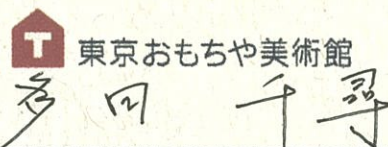 T 東京おもちゃ美術館
多田 千尋